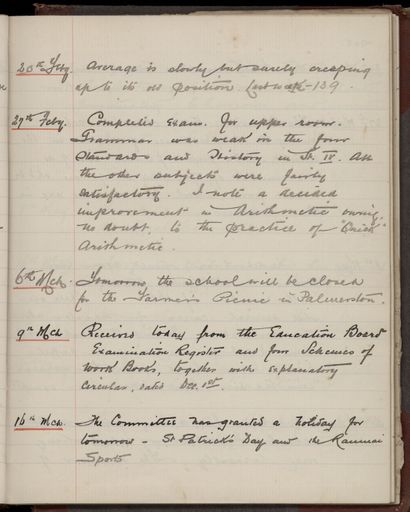 20th Feby. Average is slowly but surely creeping
up to its old position. Last week - 139.
27th Feby. Completed Exam. for upper room.
Grammar was weak in the four
Standards and History in St. IV. All
the other subjects were fairly
satisfactory. I note a decided
improvement in Arithmetic owing,
no doubt, to the practice of "Quick"
Arithmetic.
6th Mch. Tomorrow, the school will be closed
for the Farmer's Picnic in Palmerston.
9th Mch Received today from the Education Board
Examination Register and four Schemes of
Work Books, together with explanatory
circular, dated Dec. 1st.
16th Mch. The Committee has granted a holiday for
tomorrow - St Patrick's Day and the Raumai
Sports